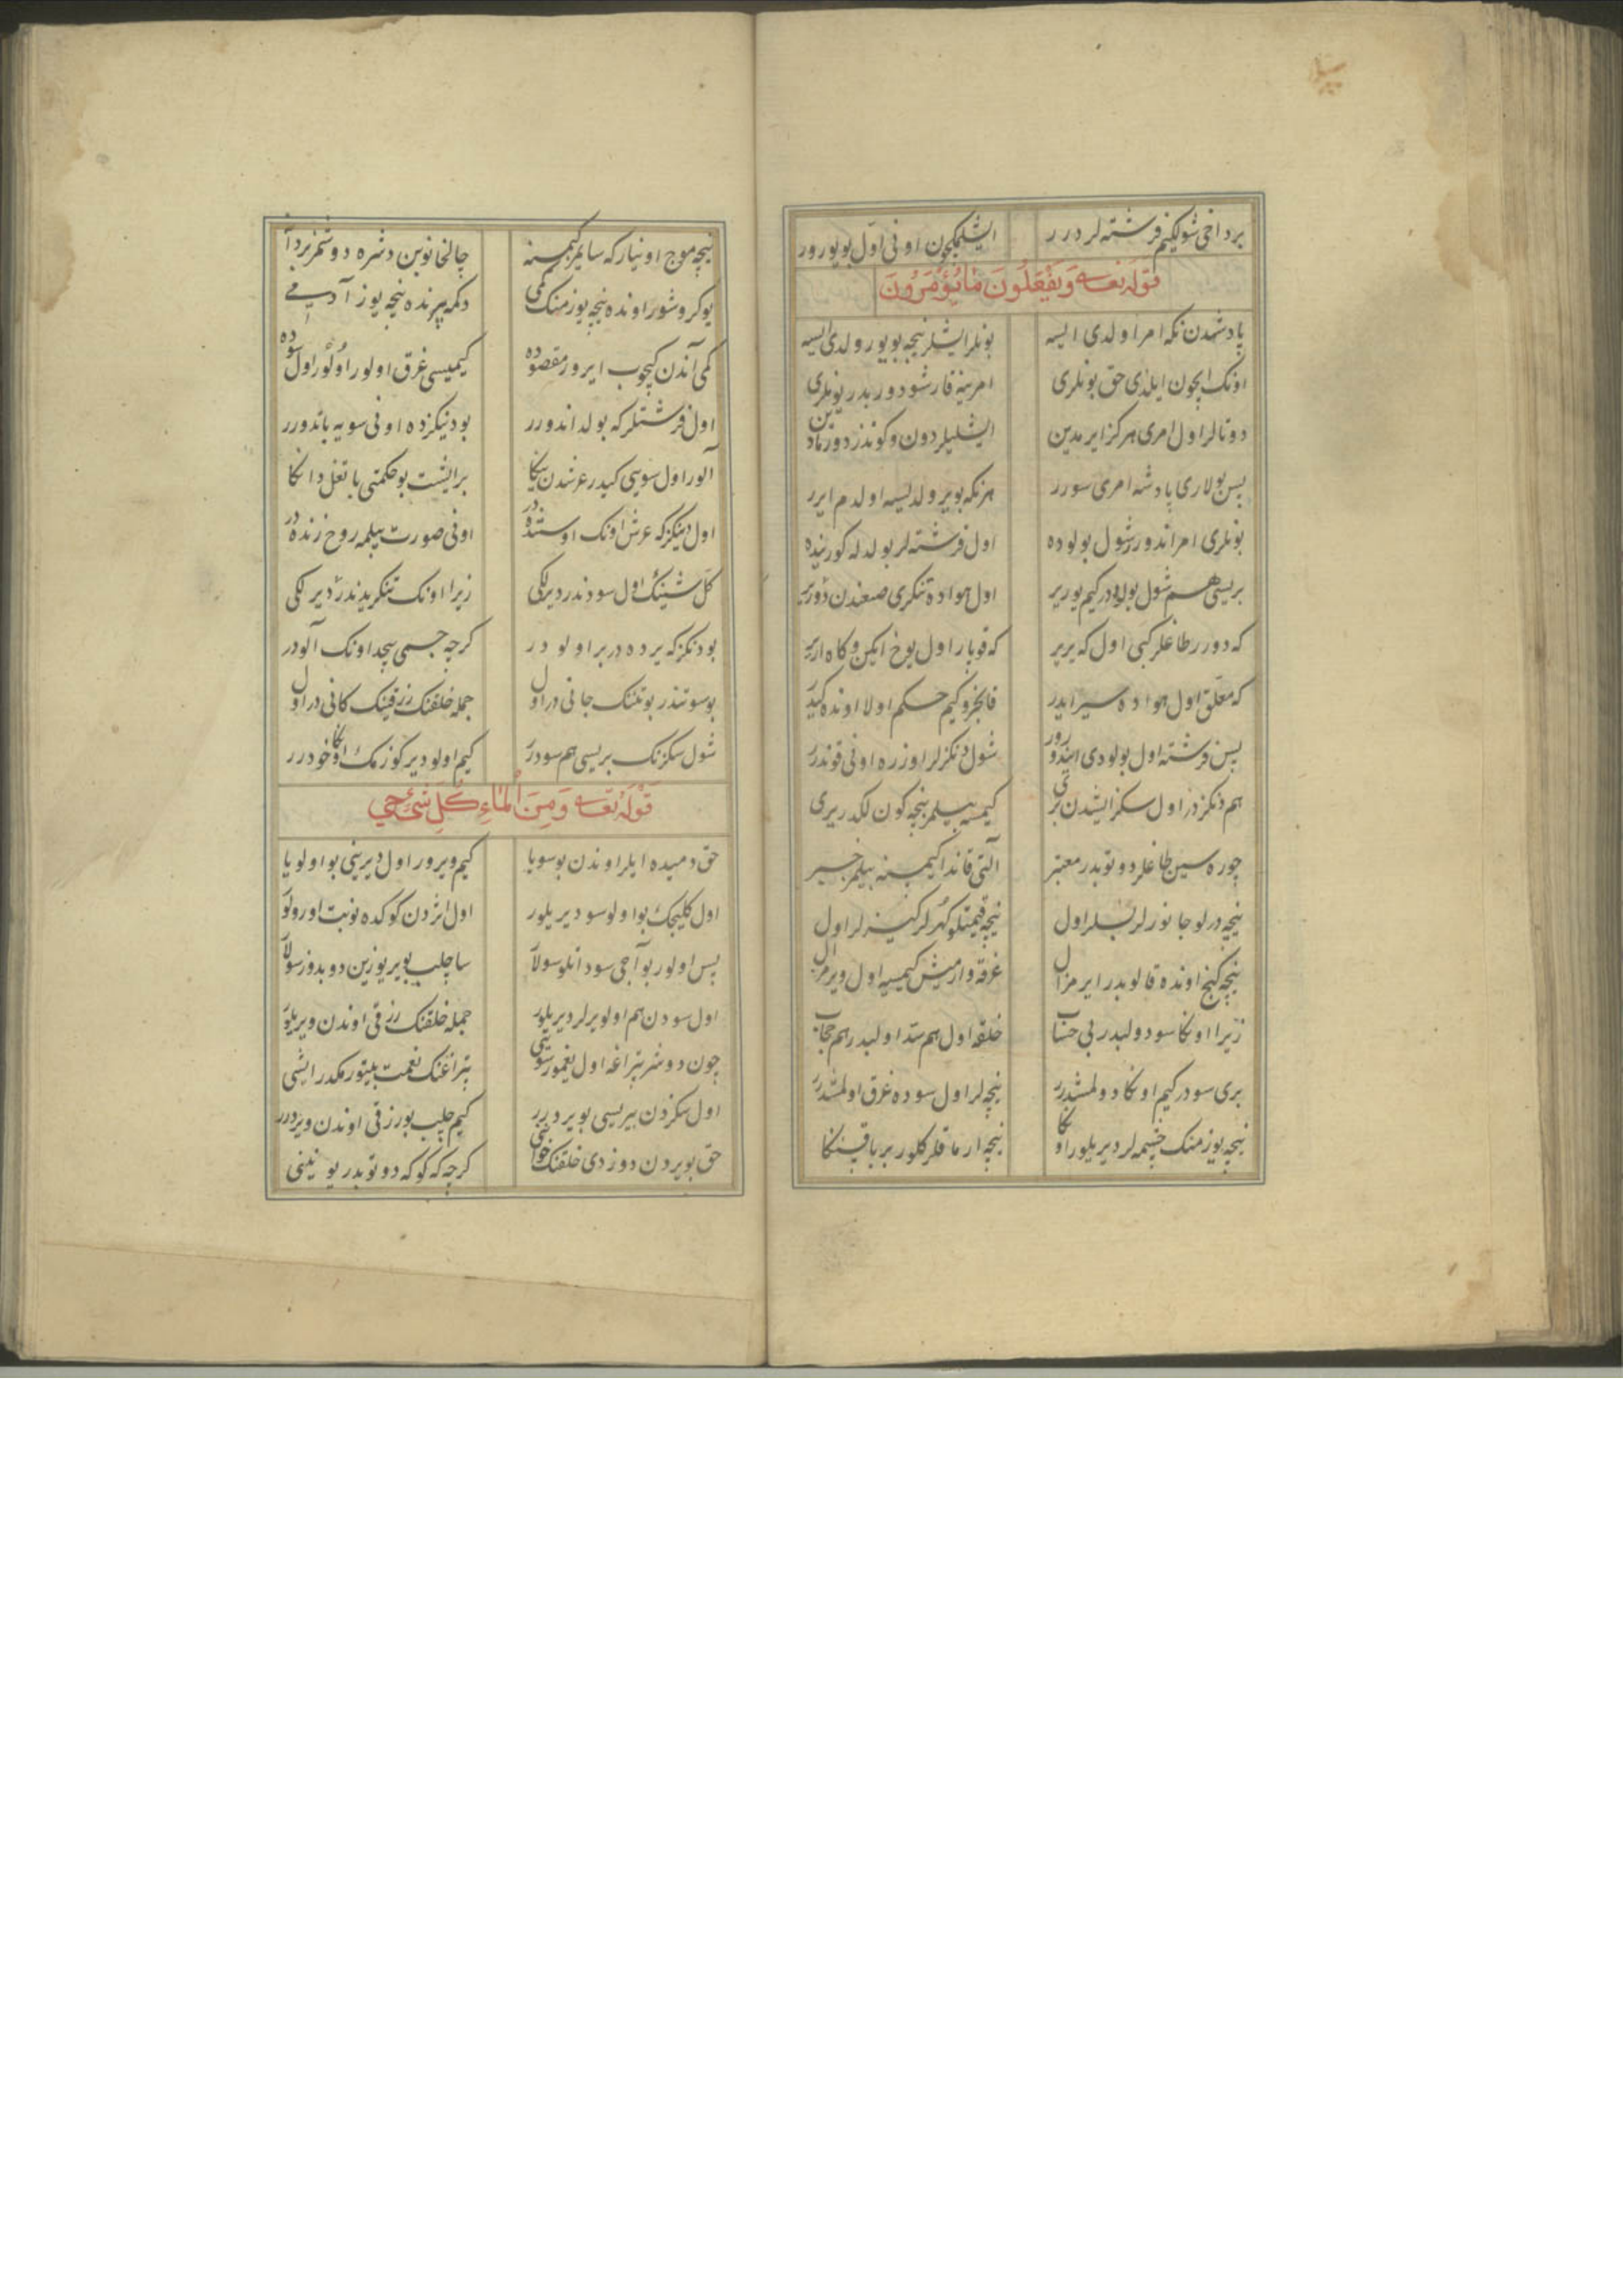 برداخی شولکیم فرشته لر درر ایشلمکچون اونی اول بویورور
قوله تعالی وَیَفْعَلُونَ مَا یُؤْمَرُونَ
پادشهدن نکه امر اولدی ایسه بونلر ایشلر نیجه بویورولدی ایسه
اونک ایچون ایلدی حق بونلری امرینه قارشو دوربدر یونلری
دوتالر اول امری هرکز ایرمدین ایشلیلر دون وکوندز دورمادین
پس بولاری پادشه امری سورر هر نکه بویرولدیسه اولدم ایرر
بونلری امر اندورر شول بولوده اول فرشته لر بولدله کورینده
بریسی هم شول بولوددر کیم یوریر اول هواده تنکری صنعندن دوریر
که دورر طاغلر کبی اول که یریر که قوپار اول یوخ ایکن وکاه اریر
که معلق اول هواده سیر ایدر قانجرو کیم حکم اولا اونده کیدر
پس فرشته اول بولودی ایندورور شول دنکزلر اوزره اونی قوندرر
هم دنکزدر اول سکز ایشدن بری کیمسه بیلمز نیجه کون لکدر یری
چوره سین طاغلر دوتوبدر معتبر آلتی قاندا کیمسنه بیلمز خبر
نیجه درلو جانورلر بسلر اول نیجه قیمتلو کهرلر کیزلر اول
نیجه کنج اونده قالوبدر ایرمز ال غرقه وارمیش کیمسیه اول ویرمز ال
زیرا اونکا سو دولبدر بی حساب خلقه اول هم سد اولبدر هم حجاب
بری سودر کیم اونکا دولمشدرر نیجه لر اول سوده غرق اولمشدرر
نیجه یوز منک چشمه لر دیریلور اونکا نیجه ارماقلر کلور بر یاقینکا
نیجه موج اوینار که سایمز کیمسنه چالخانوبن دشره دوشمز بردانه
یوکروشور اونده نیجه یوز منک کمی دکمه بیرنده نیجه یوز آدمی
کمی آندن کیچوب ایرور مقصوده کیمیسی غرق اولور اولور اول سوده
اول فرشتلر که بولد اندورر بو دنیکزده اونی سویه باتدورر
آلور اول سویی کیدر عرشدن یکا برایشت بو حکمتی باتغل دانکا
اول دینکز که عرش اونک اوستنده در اونی صورت بیلمه روخ زنده در
کل شینک اول سودندر دیرلکی زیرا اونک تنکریدندر دیرلکی
بو دنکز که یرده دریر اولودر کرچه جسمی بیجد اونک آلودر
بو سوتندر بوتننک جانی دراول جمله خلقنک رزقینک کانی دراول
شول سکزنک بریسی هم سودرر کیم اولو دیر کوزمک اونکا خودرر
قوله تعالی وَمِنَ الْمَاءِ کُلِّ شَیْءٍ حَی
حق دمیده ایلر اوندن بو سویا کیم ویرور اول دیرینی بو اولویا
اول کلیجک بو اولو سو دیریلور اول اثردن کوکده نوبت اورولور
پس اولور بو آجی سو داتلو سولار ساچلیب یویر یوزین دوبدوز سولار
اول سودن هم اولویرلر دیریلور جمله خلقنک رزقی اوندن ویریلور
چون دوشر تپراغه اول یغمور سویی تپراغنک نعمت بیتورمکدر ایشی
اول سکزدن بیریسی بو یر درر کیم چلب بو رزقی اوندن ویردرر
حق بو یردن دوزدی خلقنک خوانی کرچه که کوکه دوتوبدر یونینی